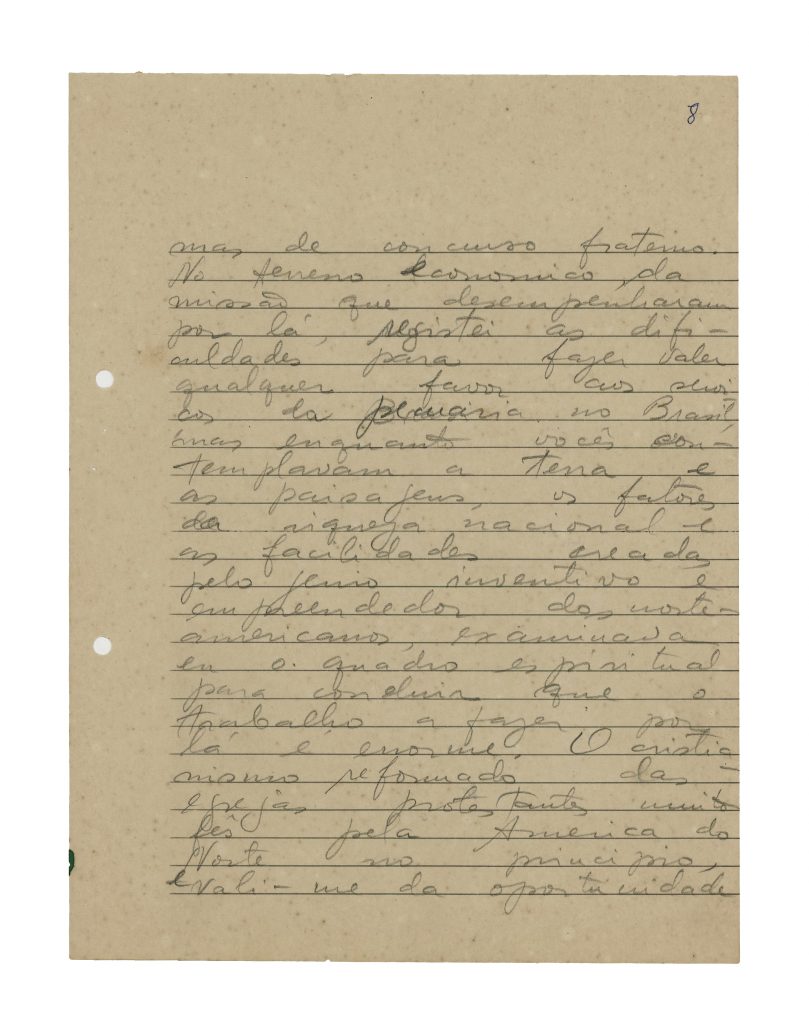 8
mas de concurso fraterno.
No terreno economico da
missão que desempenharam
por lá, registei as difi-
culdades para fazer valer
qualquer favor aos servi
cos da pecuaria no Brasil,
mas enquanto vocês con-
templavam a terra e
as paisajens, os fatores
da riqueza nacional e
as facilidades creadas
pelo jenio inventivo e
empreendedor dos norte-
americanos, examinava
eu o quadro espiritual
para concluir que o
trabalho a fazer por
lá é enorme. O cristia
nismo reformado das
egrejas protestantes muito
fês pela America do
Norte no principio,
e vali-me da oportunidade